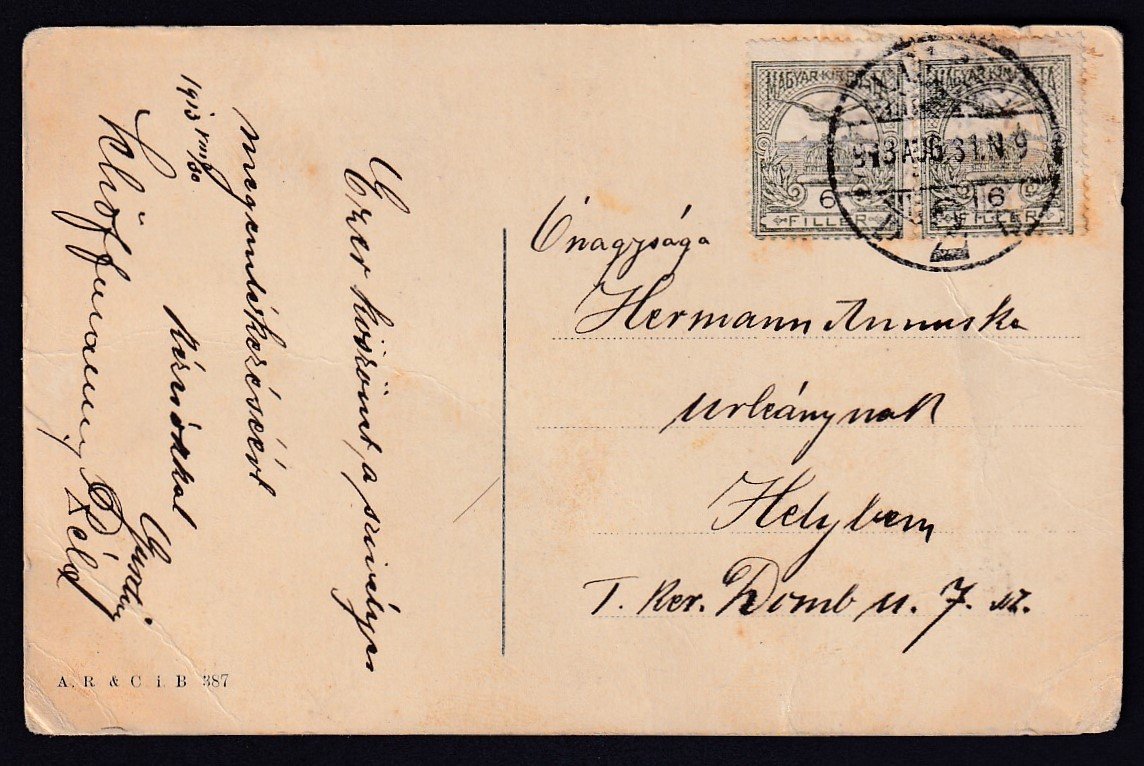 1913 VIII/30
Ezer köszönet a szivélyes
megemlékezéséért
Kézcsókkal
Guszti
Klöffmann Béla
A. R & C i. B 387
MAGYAR KIR. POSTA
6
FILLÉR
MAGYAR KIR. POSTA
6
FILLÉR
913 AUG. 31. N 9
Őnagysága
Hermann Annuska
urleánynak
Helyben
I. Ker. Domb u. 7. sz.